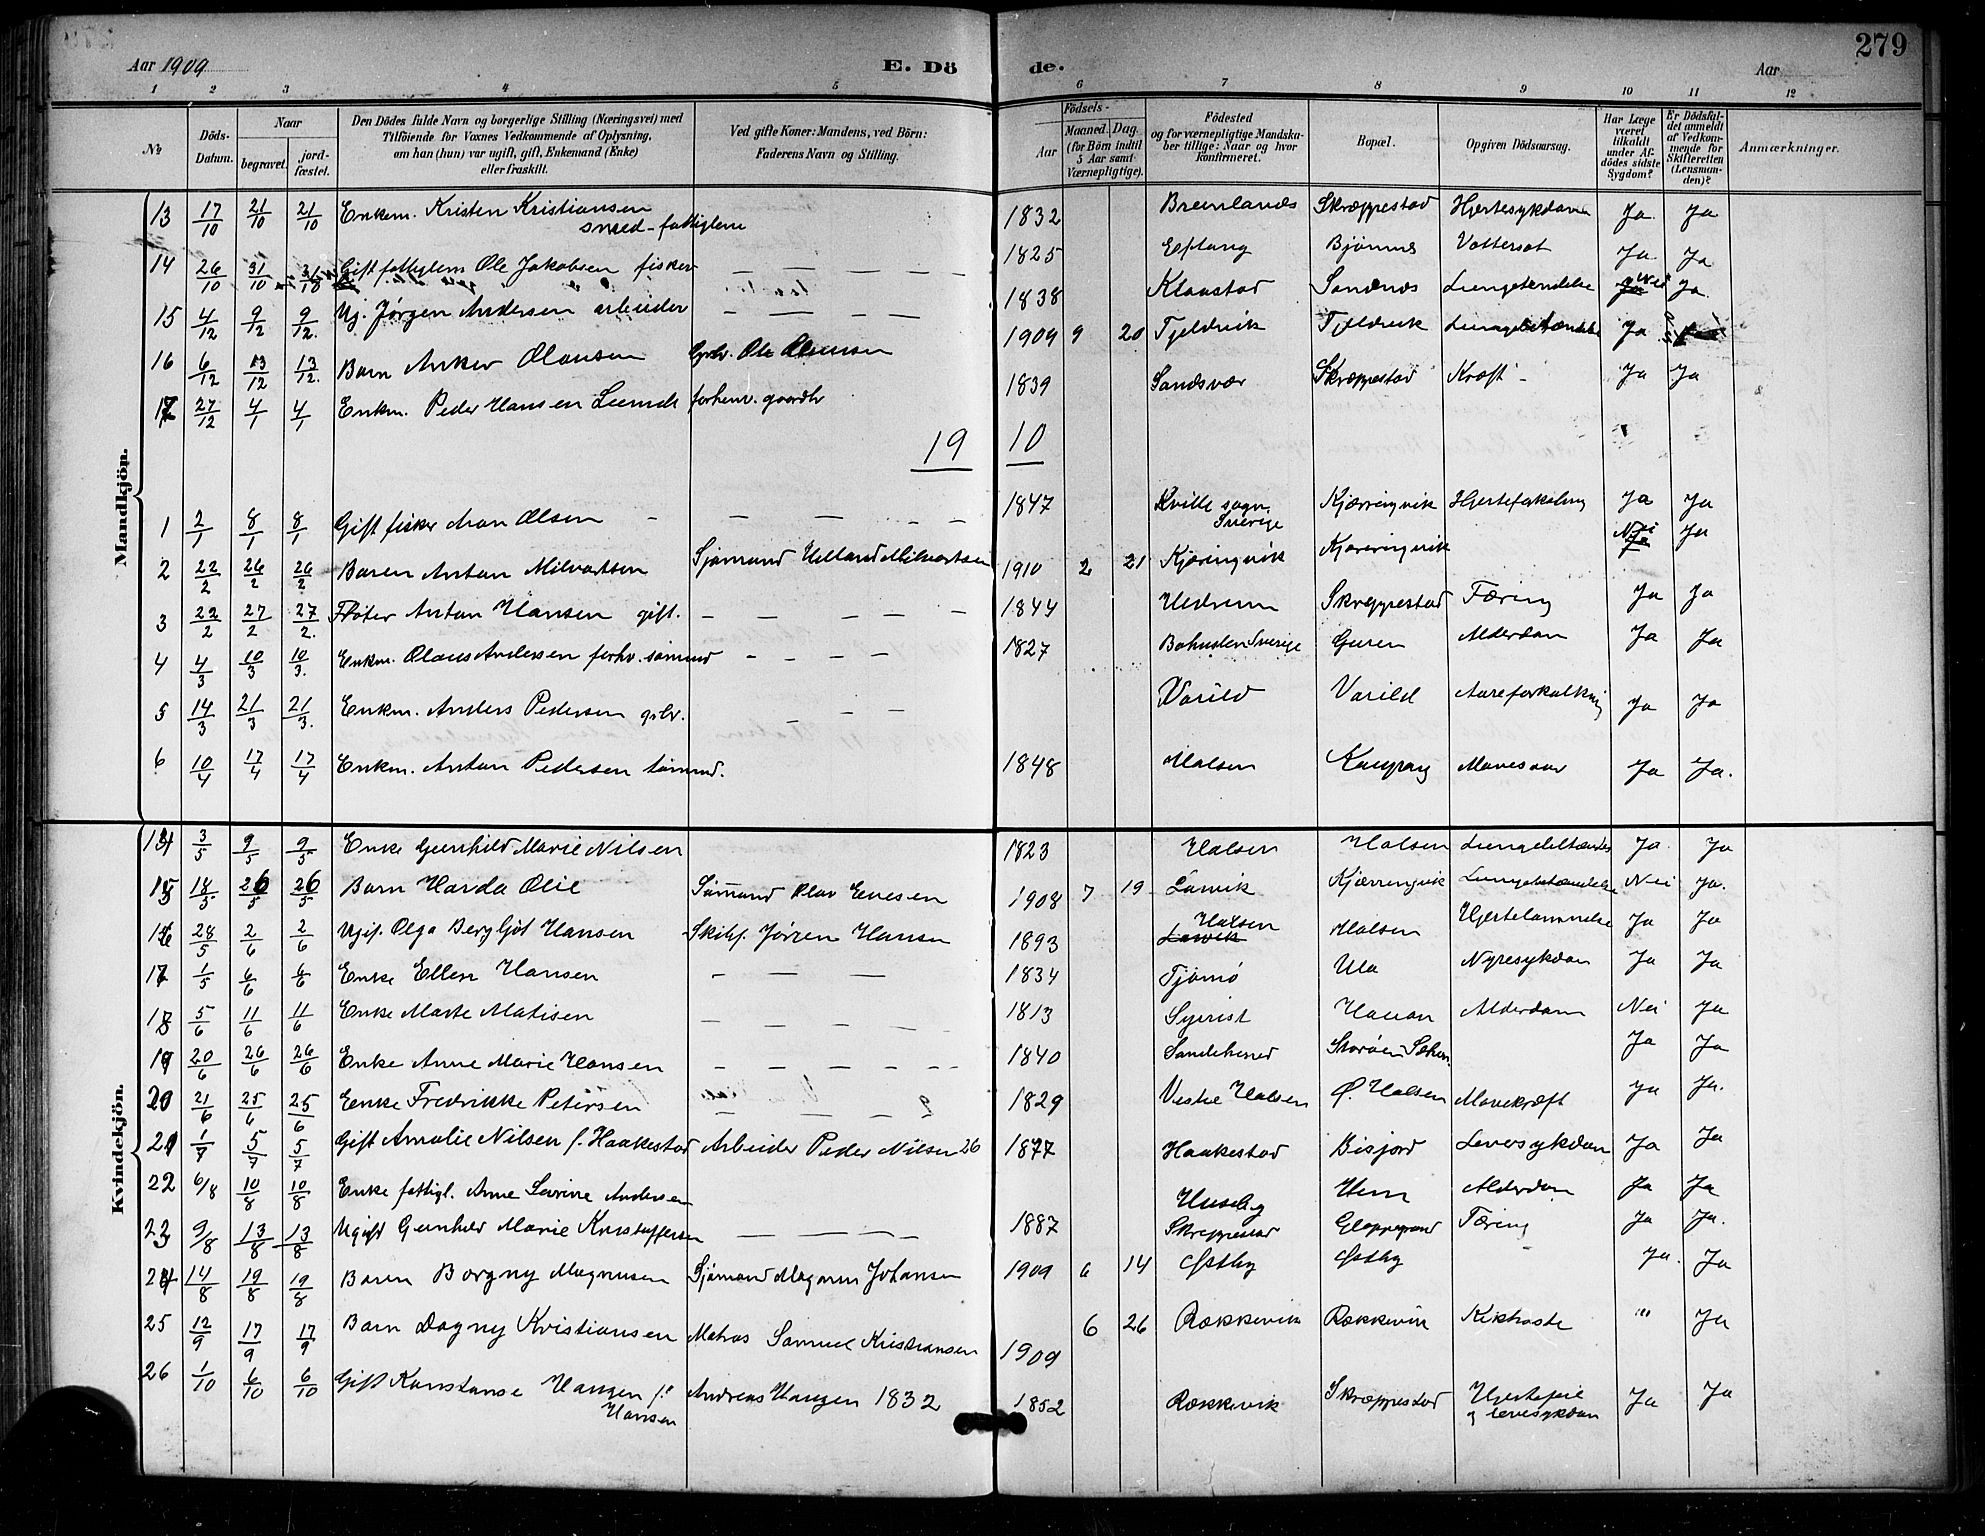 279
Aar 1909 E. Dö de. Aar
1 2 3 4 5 6 7 8 9 10 11 12
№ Döds-Datum. Naar begravet. jord-fæstet. Den Dödes fulde Navn og borgerlige Stilling (Næringsvei) med Tilföiende for Voxnes Vedkommende af Oplysning, om han (hun) var ugift, gift, Enkemand (Enke) eller fraskilt. Ved gifte Koner: Mandens, ved Börn: Faderens Navn og Stilling. Födsels- Aar Maaned. Dag. (for Börn indtil 5 Aar samt Værnepligtige). Födested og for værnepligtige Mandska-ber tillige: Naar og hvor konfirmeret. Bopæl. Opgiven Dödsaarsag. Har Læge været tilkaldt under Af-dödes sidste Sygdom? Er Dödsfal-det anmeldt af Vedkom-mende for Skifteretten (Lensman-den)? Anmærkninger.
Mandkjön.
13 17/10 21/10 21/10 Enkem. Kristen Kristiansen smed - fattiglem 1832 Brunlanes Skræppestad Hjertesykdom Ja Ja
14 26/10 31/10 31/10 Gift fattiglem Ole Jakobsen fisker — — — — 1825 Eftang Bjønnes Vattersot Ja Ja
15 4/12 9/12 9/12. Ug. Jørgen Andersen arbeider — — — — 1838 Klaastad Sandnes Lungebtændelse Nei Ja
16 6/12 13/12 13/12. Barn Anker Olausen Grbr. Ole Olausen 1909 9 20 Tjeldvik Tjeldvik Lungebetændelse Ja
17 27/12 4/1 4/1 Enkm. Peder Hansen Lunde forhenv. gaardbr 1839 Sandsvær Skræppestad Kræft - Ja Ja
19 10
1 2/1 8/1 8/1 Gift fisker Olsen — — — 1847 Kville sogn Sverige Kjærringvik Hjerteforkalkning Ja Ja
2 22/2 26/2 26/2 Baren Anton Milvartsen Sjømand Milvartsen 1910 2 21 Kjæringvik Kjærringvik Nei Ja
3 22/2 27/2 27/2. Fløter Anton Hansen gift. — — — — 1844 Hedrum Skræppestad Tæring Ja Ja
4 4/3 10/3 10/3. Enkm. Olaus Andersen forhv. sømnd — — — — 1827 Bohuslen Sverige Guren Alderdom Ja Ja
5 14/3 21/3 21/3. Enkm. Anders Pedersen grbr. — — — Varild Varild Aareforkalkning Ja Ja
6 10/4 17/4 17/4 Enkm. Anton Pedersen tømmd. 1848 Halsen Kaupang Mavesaar Ja Ja.
Kvindekjön.
14 3/5 9/5 9/5 Enke Gunhild Marie Nilsen 1823 Halsen Halsen Lungebetændes Ja Ja
15 18/5 26/5 26/5 Barn Harda Olie Sømand Olav Evesen 1908 7 19 Larvik Kjærringvik Lungebetændelse Nei Ja.
16 28/5 2/6 2/6 Ugif. Olga Bergljot Hansen Skibsf. Jørgen Hansen 1893 Halsen Larvik Halsen Hjertelammelse Ja Ja
17 1/5 6/6 6/6 Enke Ellen Hansen — — — 1834 Tjømø Ula Nyresykdom Ja Ja
18 5/6 11/6 11/6 Enke Marte Matisen — — — — — 1813 Syvrist Hauan Alderdom Nei Ja
19 20/6 26/6 26/6 Enke Anne Marie Hansen — — — — — — 1840 Sandeherred Storøen Ja Ja
20 21/6 25/6 25/6 Enke Fredrikke Petersen — — — — 1829 Vestre Halsen Ø. Halsen Mavekræft Ja Ja.
21 1/7 5/7 5/7 Gift Amalie Nilsen f. Haakestad Arbeider Peder Nilsen 26 1877 Haakestad Bisjord Leversykdom Ja Ja
22 6/8 10/8 10/8 Enke fattigl. Anne Severine Andersen Huseby Hem Alderdom Ja Ja
23 9/8 13/8 13/8 Ugift Gunhild Marie Kristoffersen — — — — 1887 Skræppestad Tæring Ja Ja.
24 14/8 19/8 19/8 Baren Borgny Magnusen Sjømand Magnus Johansen 1909 6 14 Østby Østby Ja. Ja
25 12/9 17/9 17/9 Barn Dagny Kristiansen Matros Samuel Kristiansen 1909 6 26 Rækkevik Rækkevik Kikhoste " Ja
26 1/10 6/10 6/10 Gift Konstanse Haugen f. Hansen Andreas Haugen 1832 1852 Rækkevik Skræppestad Hjertefeil og leversykdom Ja Ja